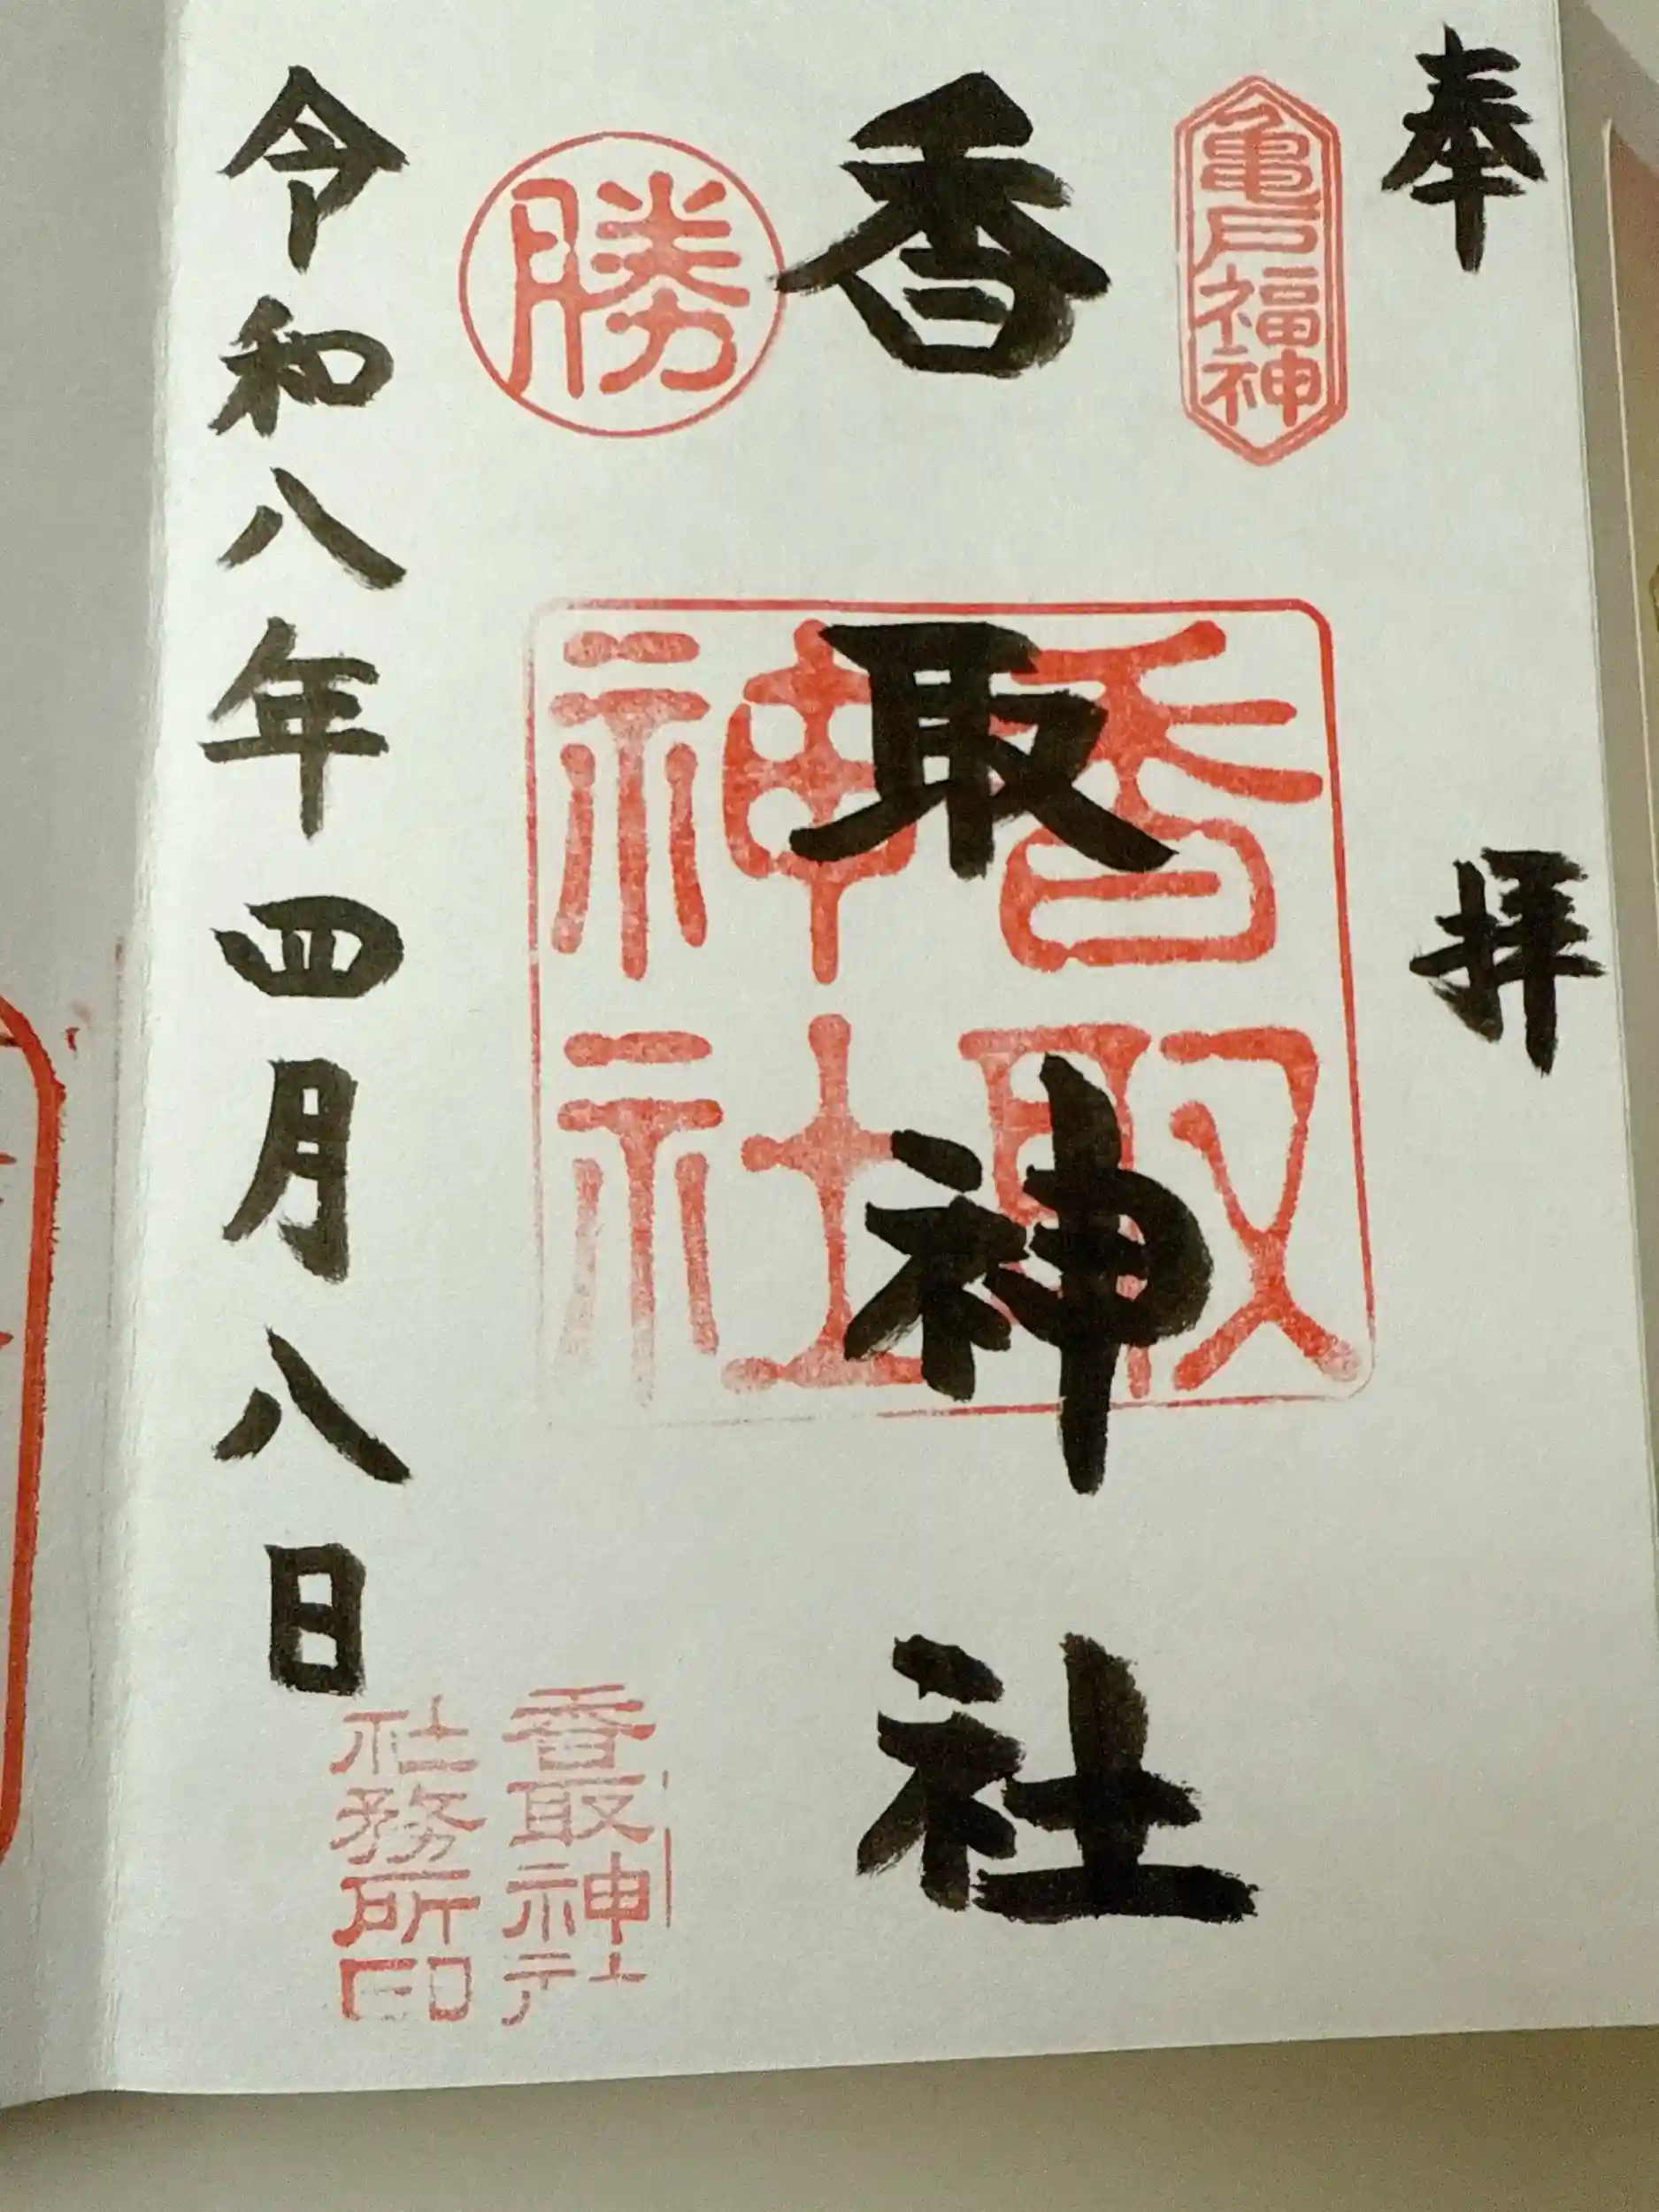 奉拝
亀戸
福神
香取神社
香取
神社
勝
令和八年四月八日
香取神社
社務所印